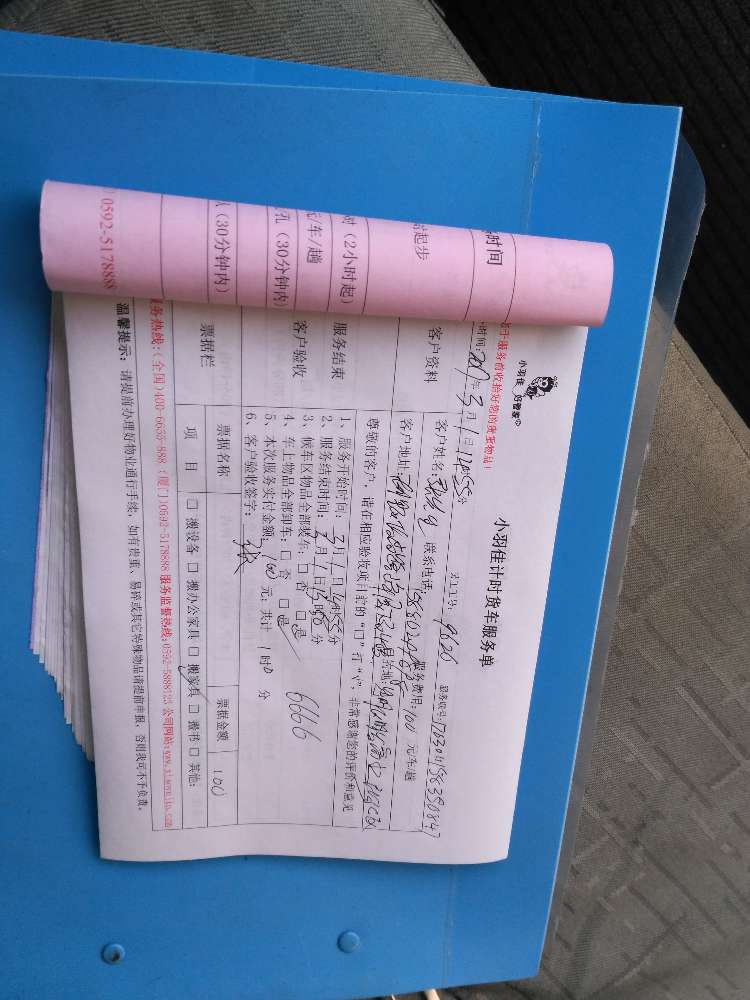 小羽佳 好管家
小羽佳计时货车服务单
服务前收拾好您的贵重物品!
员工工号: 9620
时间: 年3月1日14时55分
客户资料
客户姓名: 联系电话:
服务费用: 100 元/车/趟
客户地址:
尊敬的客户,请在相应验收项目前的“□”打“√”,非常感谢您的评价和意见
服务结束
客户验收
1、服务开始时间: 3月1日14时55分
2、服务结束时间: 3月1日15时50分
3、候车区物品全部装车: □否 □是
4、车上物品全部卸车: □否 □是
5、本次服务实付金额: 100 元, 共计 1 时0 分
6、客户验收签字:
6666
票据栏
票据名称
票据金额
100
项目
□搬设备 □搬办公家具 □搬家具 □搬书 □其他:
服务热线:(全国)400-6655-888 (厦门)0592-5178888 服务监督热线:0592-5888125 公司网站:www.xiaoyujia.com
温馨提示: 请提前办理好物业通行手续, 如有贵重、易碎或其它特殊物品请提前申报, 否则我司不予负责。
时间
时起步
时(2小时起)
元/车/趟
(30分钟内)
(30分钟内)
0592-5178888